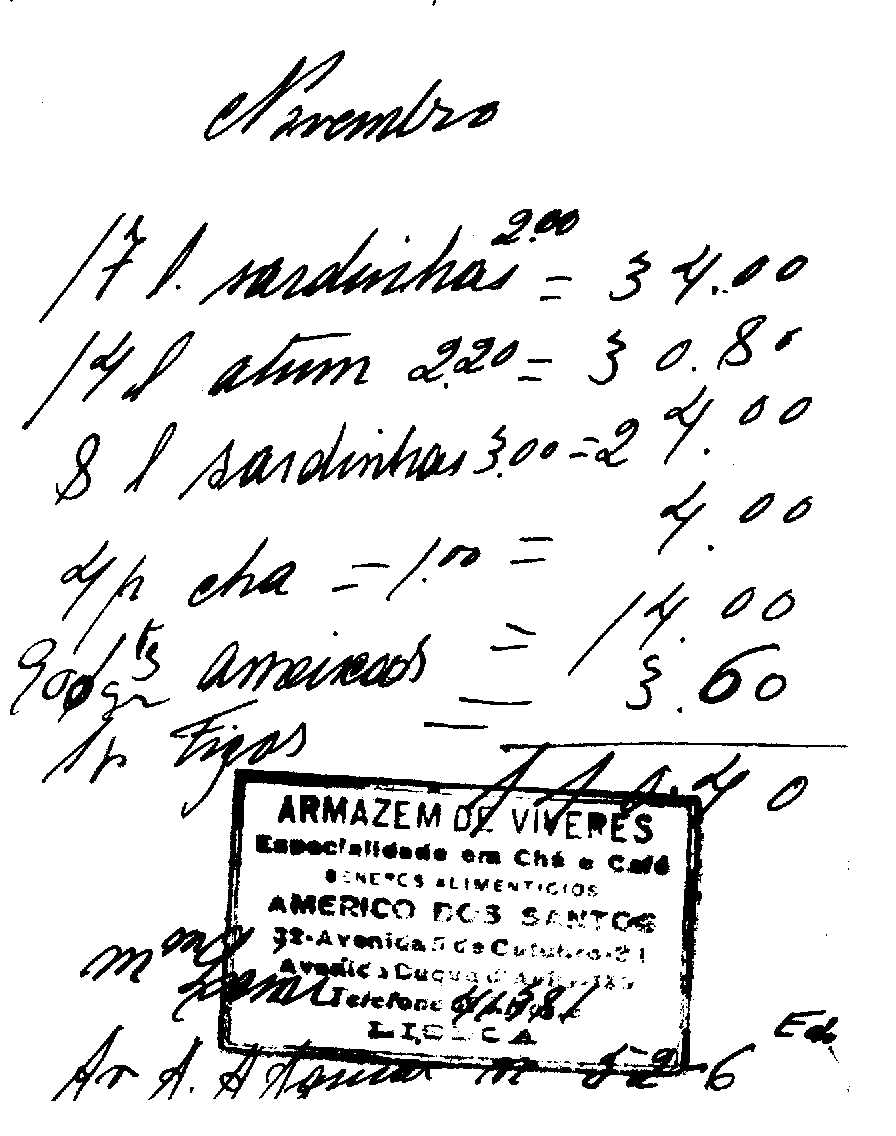 Novembro
17 l. sardinhas 2.00 = 34.00
14 l atum 2.20 = 30.80
8 l sardinhas 3.00 = 24.00
4 p cha = 1.00 = 4.00
1 k ameixas = 14.00
900 gr
1 p Figos = 3.60
110.40
ARMAZEM DE VIVERES
Especialidade em Chá e Café
GENEROS ALIMENTICIOS
AMERICO DOS SANTOS
32-Avenida 5 de Outubro-
Avenida Duque d'Avila-
Telefone
LISBOA
Av A. A n 52 6